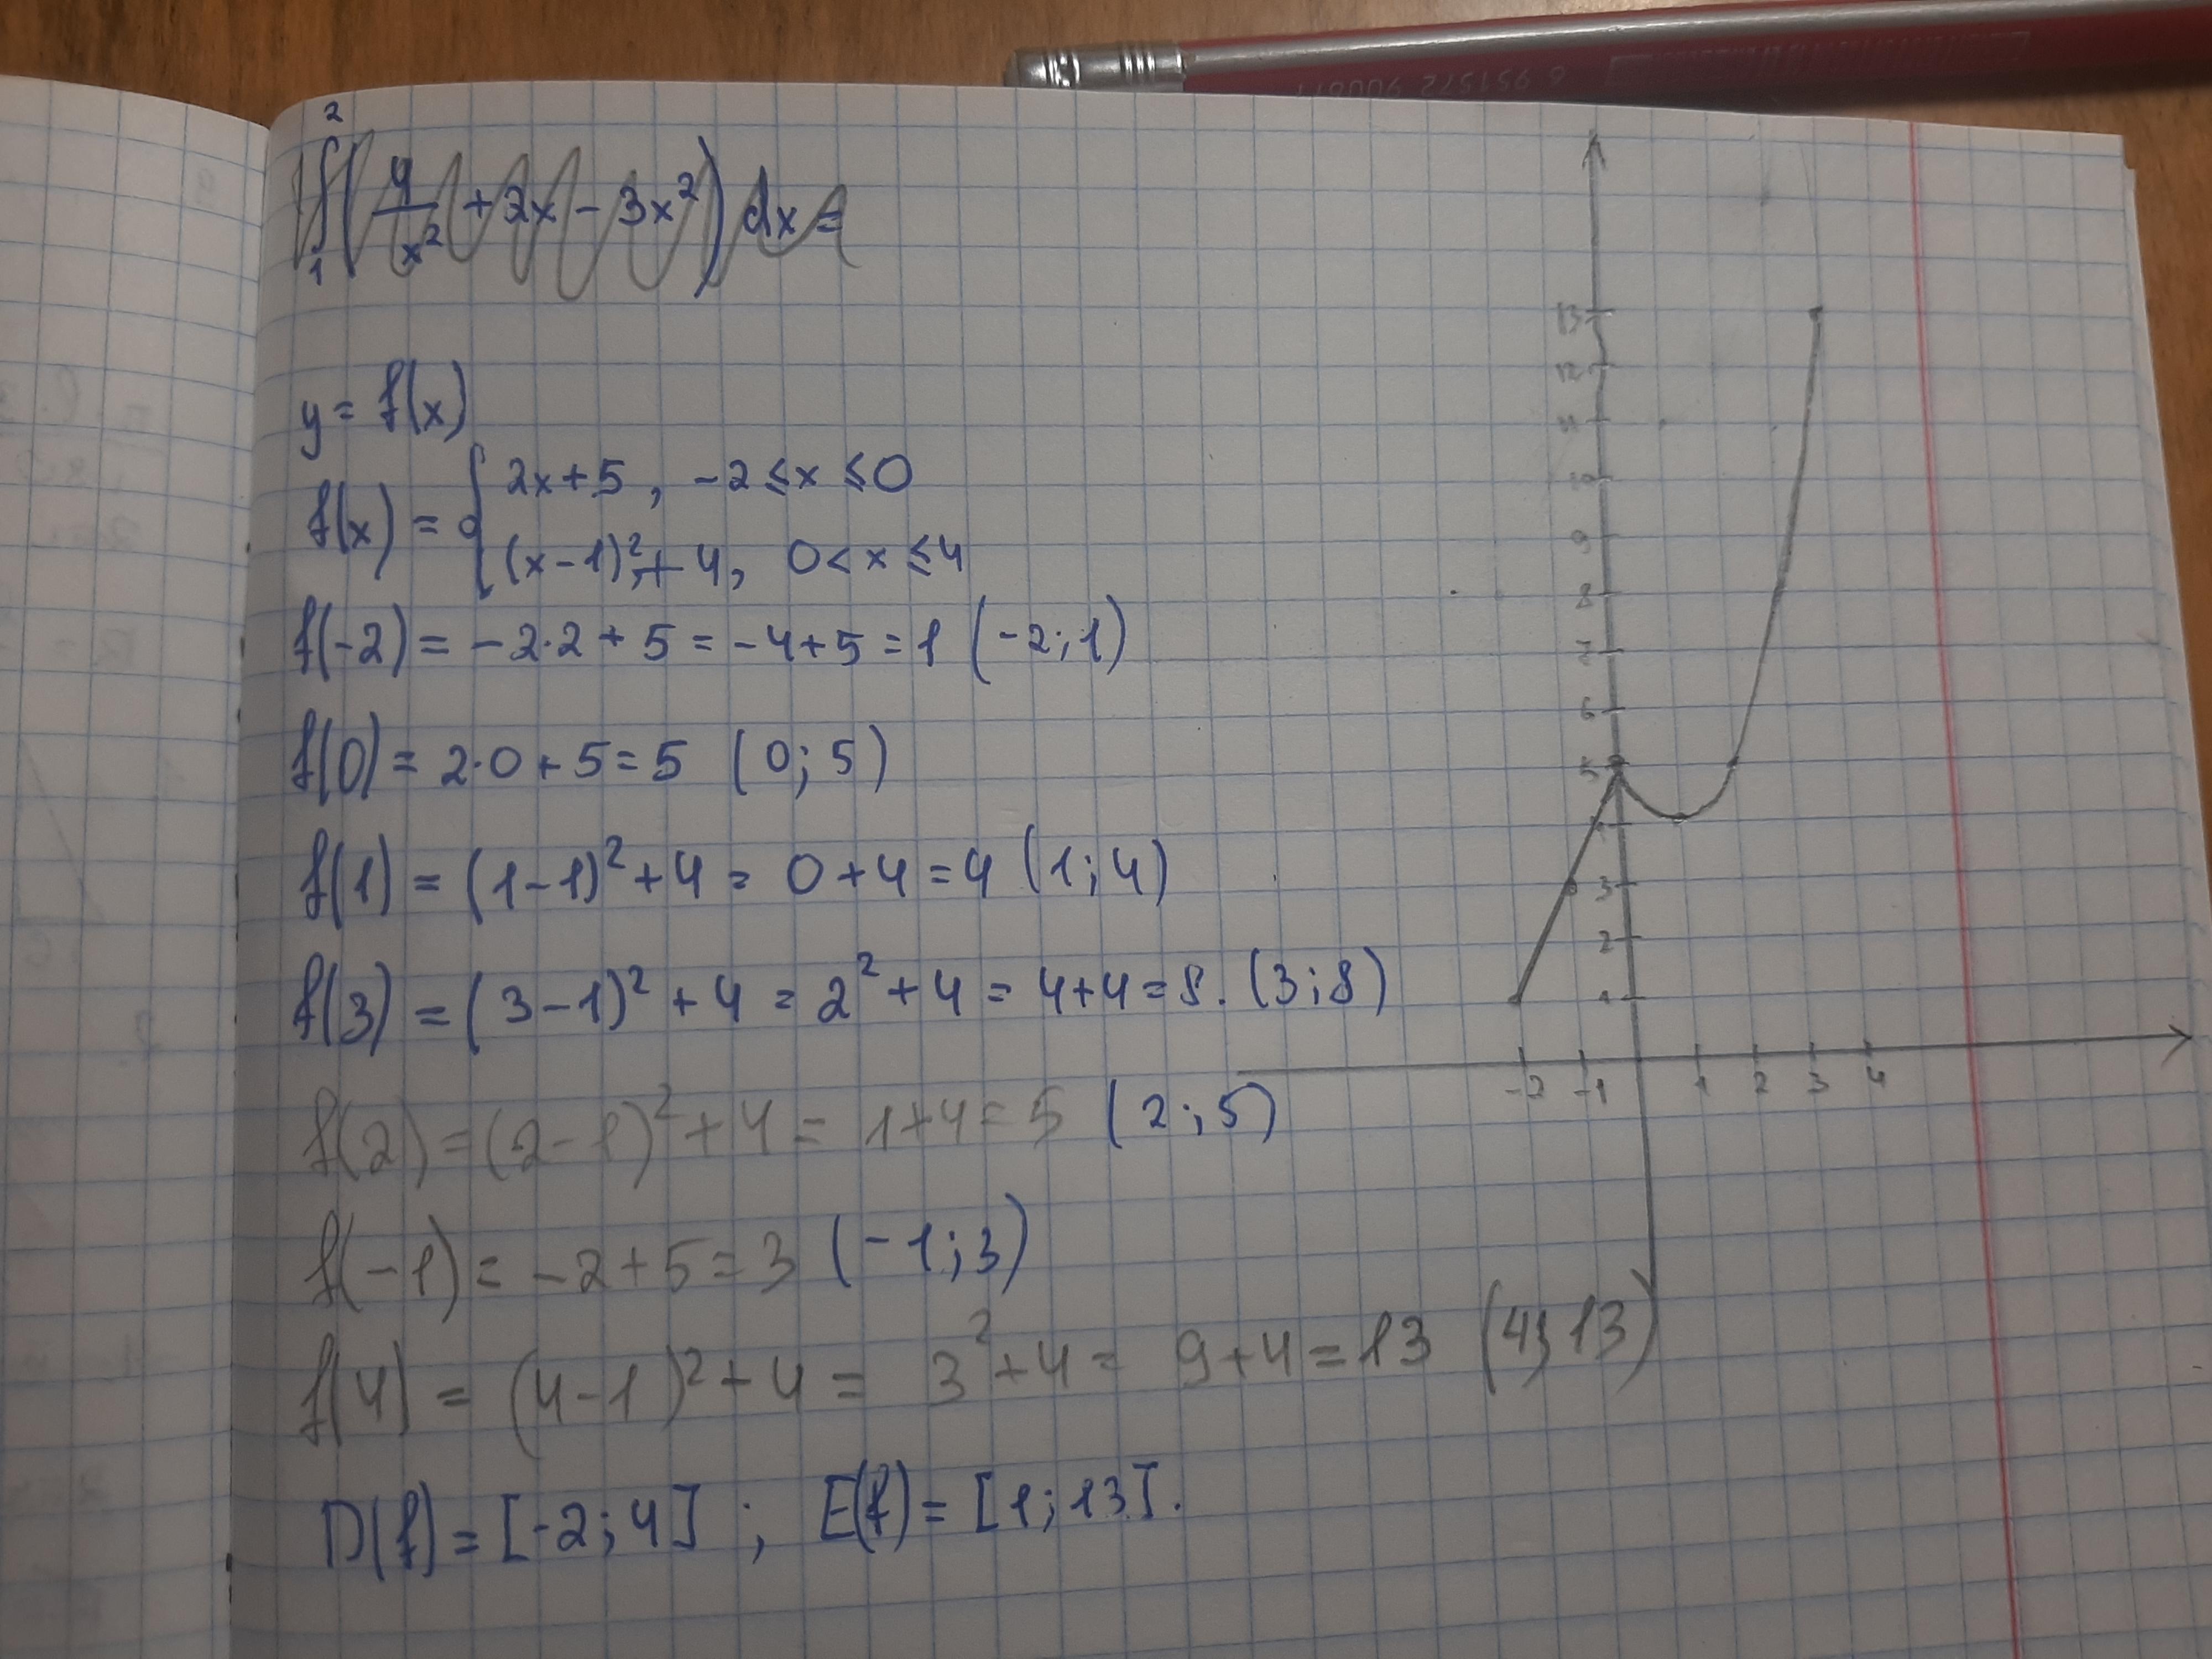 6 951572 900811
2
∫ ( 4/x² + 2x - 3x² ) dx =
1
y = f(x)
f(x) = { 2x+5, -2 ≤ x ≤ 0
(x-1)² + 4, 0 < x ≤ 4
f(-2) = -2·2 + 5 = -4+5 = 1 (-2; 1)
f(0) = 2·0 + 5 = 5 (0; 5)
f(1) = (1-1)² + 4 = 0 + 4 = 4 (1; 4)
f(3) = (3-1)² + 4 = 2² + 4 = 4+4 = 8. (3; 8)
f(2) = (2-1)² + 4 = 1+4 = 5 (2; 5)
f(-1) = -2+5 = 3 (-1; 3)
f(4) = (4-1)² + 4 = 3² + 4 = 9+4 = 13 (4; 13)
D(f) = [-2; 4] ; E(f) = [1; 13].
13
12
11
10
9
8
7
6
5
4
3
2
1
-2 -1 1 2 3 4